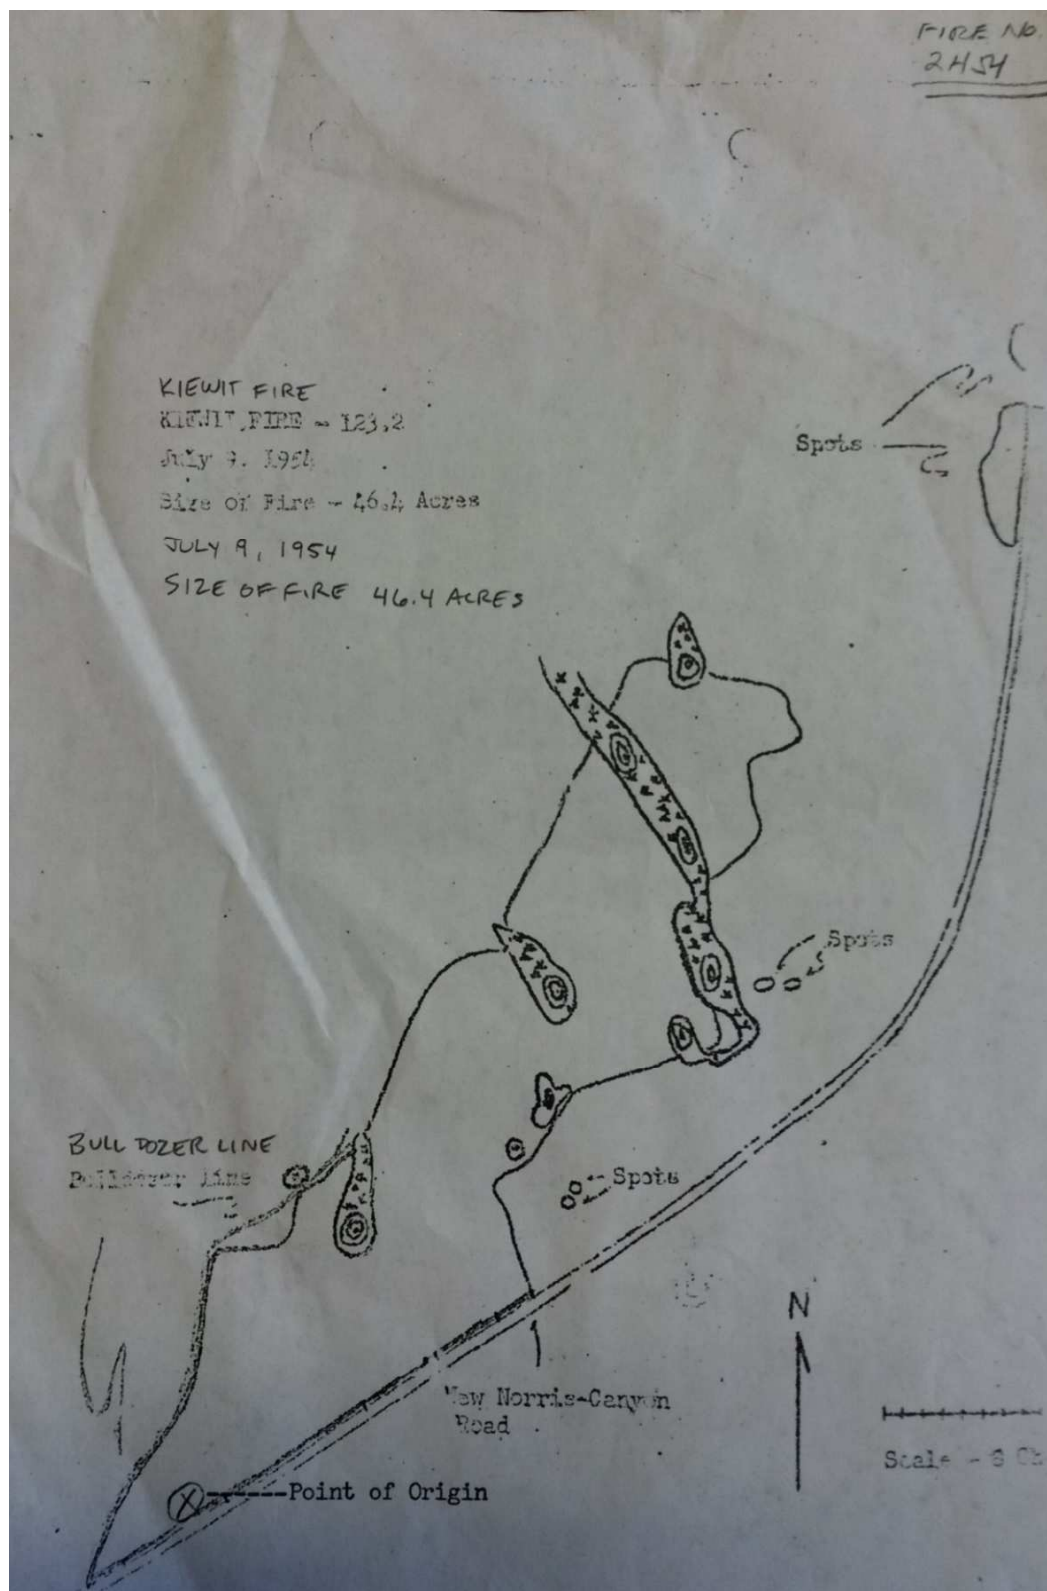 FIRE NO.
2H54
KIEWIT FIRE
KIEWIT FIRE - 123.2
July 9, 1954
Size of Fire - 46.4 Acres
JULY 9, 1954
SIZE OF FIRE 46.4 ACRES
Spots
Spots
BULL DOZER LINE
Bulldozer line
Spots
N
New Norris-Canyon
Road
Scale -
Point of Origin